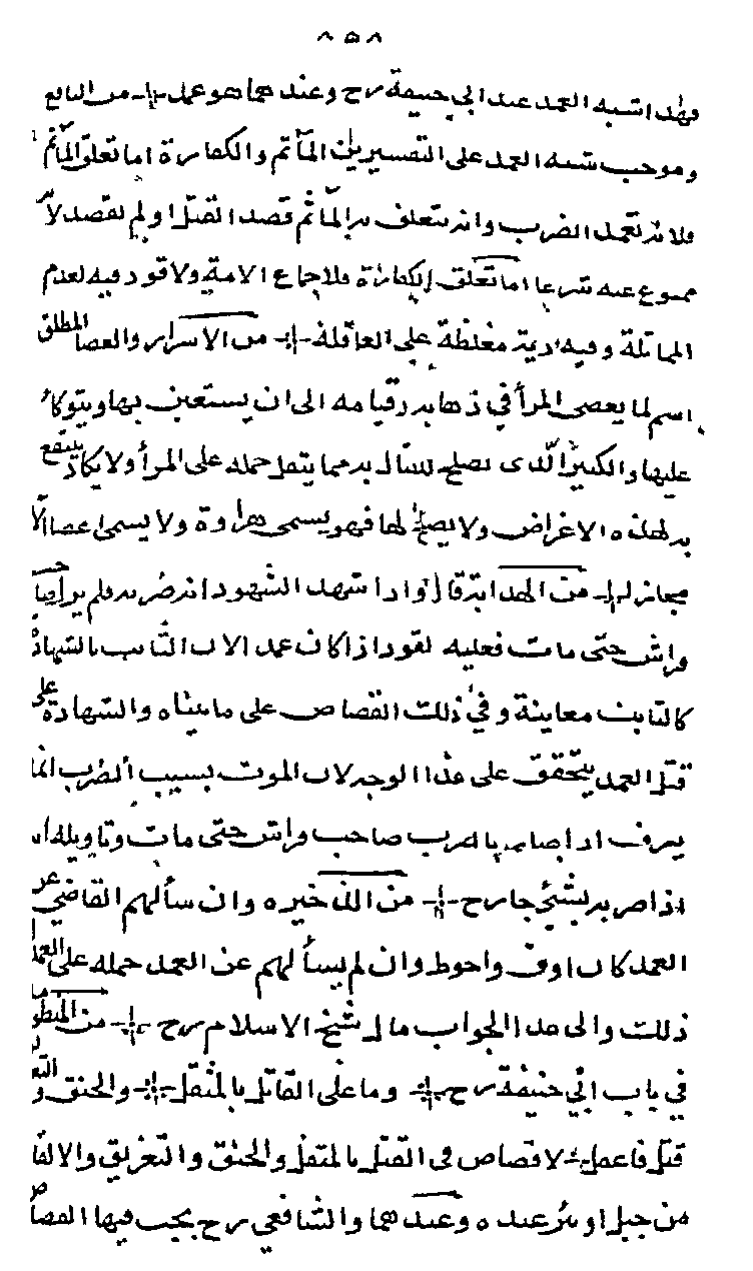 ٨٥٨
فهذا شبه العمد عند ابي حنيفة رح وعندهما هو عمل من النافع
وموجب شبه العمد على التفسيرين المأثم والكفارة اما تعلق المأثم
فلانه تعمد الضرب وانه يتعلق به المأثم قصد القتل او لم يقصد لانه
ممنوع عنه شرعا اما تعلق الكفارة فلاجماع الامة ولا قود فيه لعدم
المماثلة وفيه دية مغلظة على العاقلة من الاسرار والعصا المطلق
اسم لما يعصى المرأ في ذهابه وقيامه الى ان يستعين بها ويتوكأ
عليها والكبير الذي يصلح للقتال به مما يثقل حمله على المرأ ولا يكاد ينتفع
به لهذه الاغراض ولا يصلح لها فهو يسمى هراوة ولا يسمى عصا الا
مجازا من الهداية قال واذا شهد الشهود انه ضربه فلم يزل صاحب
فراش حتى مات فعليه لقود اذا كان عمدا لان الثابت بالشهادة
كالثابت معاينة وفي ذلك القصاص على ما بيناه والشهادة على
قتل العمد يتحقق على هذا الوجه لان الموت بسبب الضرب انما
يعرف اذا صار بالضرب صاحب فراش حتى مات وتاويله ان
اذا ضربه بشئ جارح من الذخيرة وان سألهم القاضي عن
العمد كان اوفق واحوط وان لم يسألهم عن العمد حمله على العمد
ذلك والى هذا الجواب مال شيخ الاسلام رح من المنظومة
في باب ابي حنيفة رح وما على القاتل بالمثقل والخنق و
قتل فاعقل لا قصاص في القتل بالمثقل والخنق والتغريق والالقاء
من جبل او بئر عنده وعندهما والشافعي رح يجب فيها القصاص